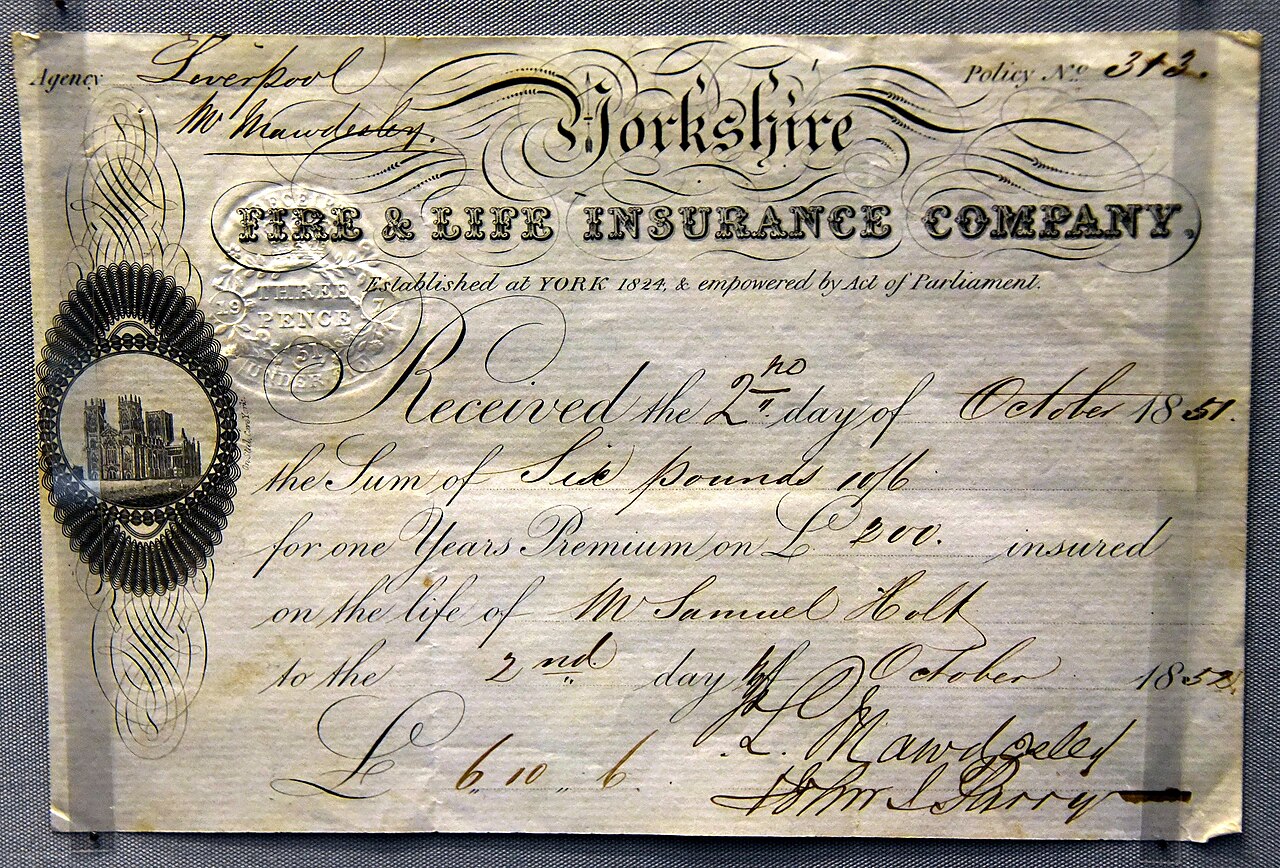 Agency Liverpool
Mr Mawdesley.
Policy No. 313.
Yorkshire
FIRE & LIFE INSURANCE COMPANY.
Established at YORK 1824, & empowered by Act of Parliament.
THREE
PENCE
Received the 2nd day of October 1851.
the Sum of Six pounds 10/6
for one Years Premium on £ 200. insured
on the life of Mr Samuel Holt
to the 2nd day of October 1852.
L. Mawdesley
£ 6, 10, 6
John S Parry